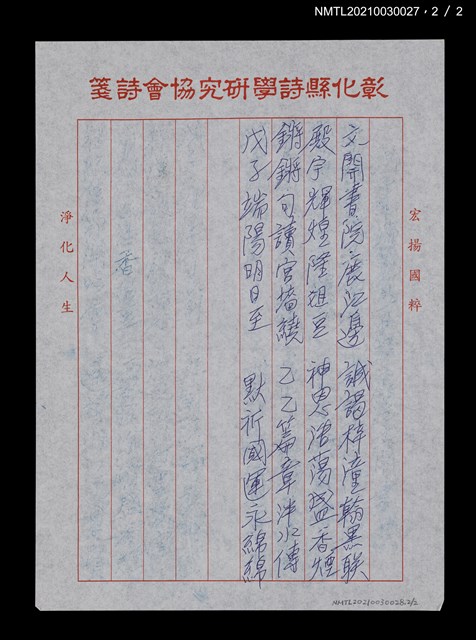 NMTL20210030027，2 / 2
彰化縣詩學研究協會詩箋
宏揚國粹
文開書院鹿江邊 誠謁梓潼翰墨联
殿宇輝煌隆俎豆 神恩浩蕩盛香煙
鏘鏘句讀宮墻繞 乙乙篇章泮水傳
戊子端陽明日至 默祈國運永綿綿
香
淨化人生
NMTL20210030028.2/2